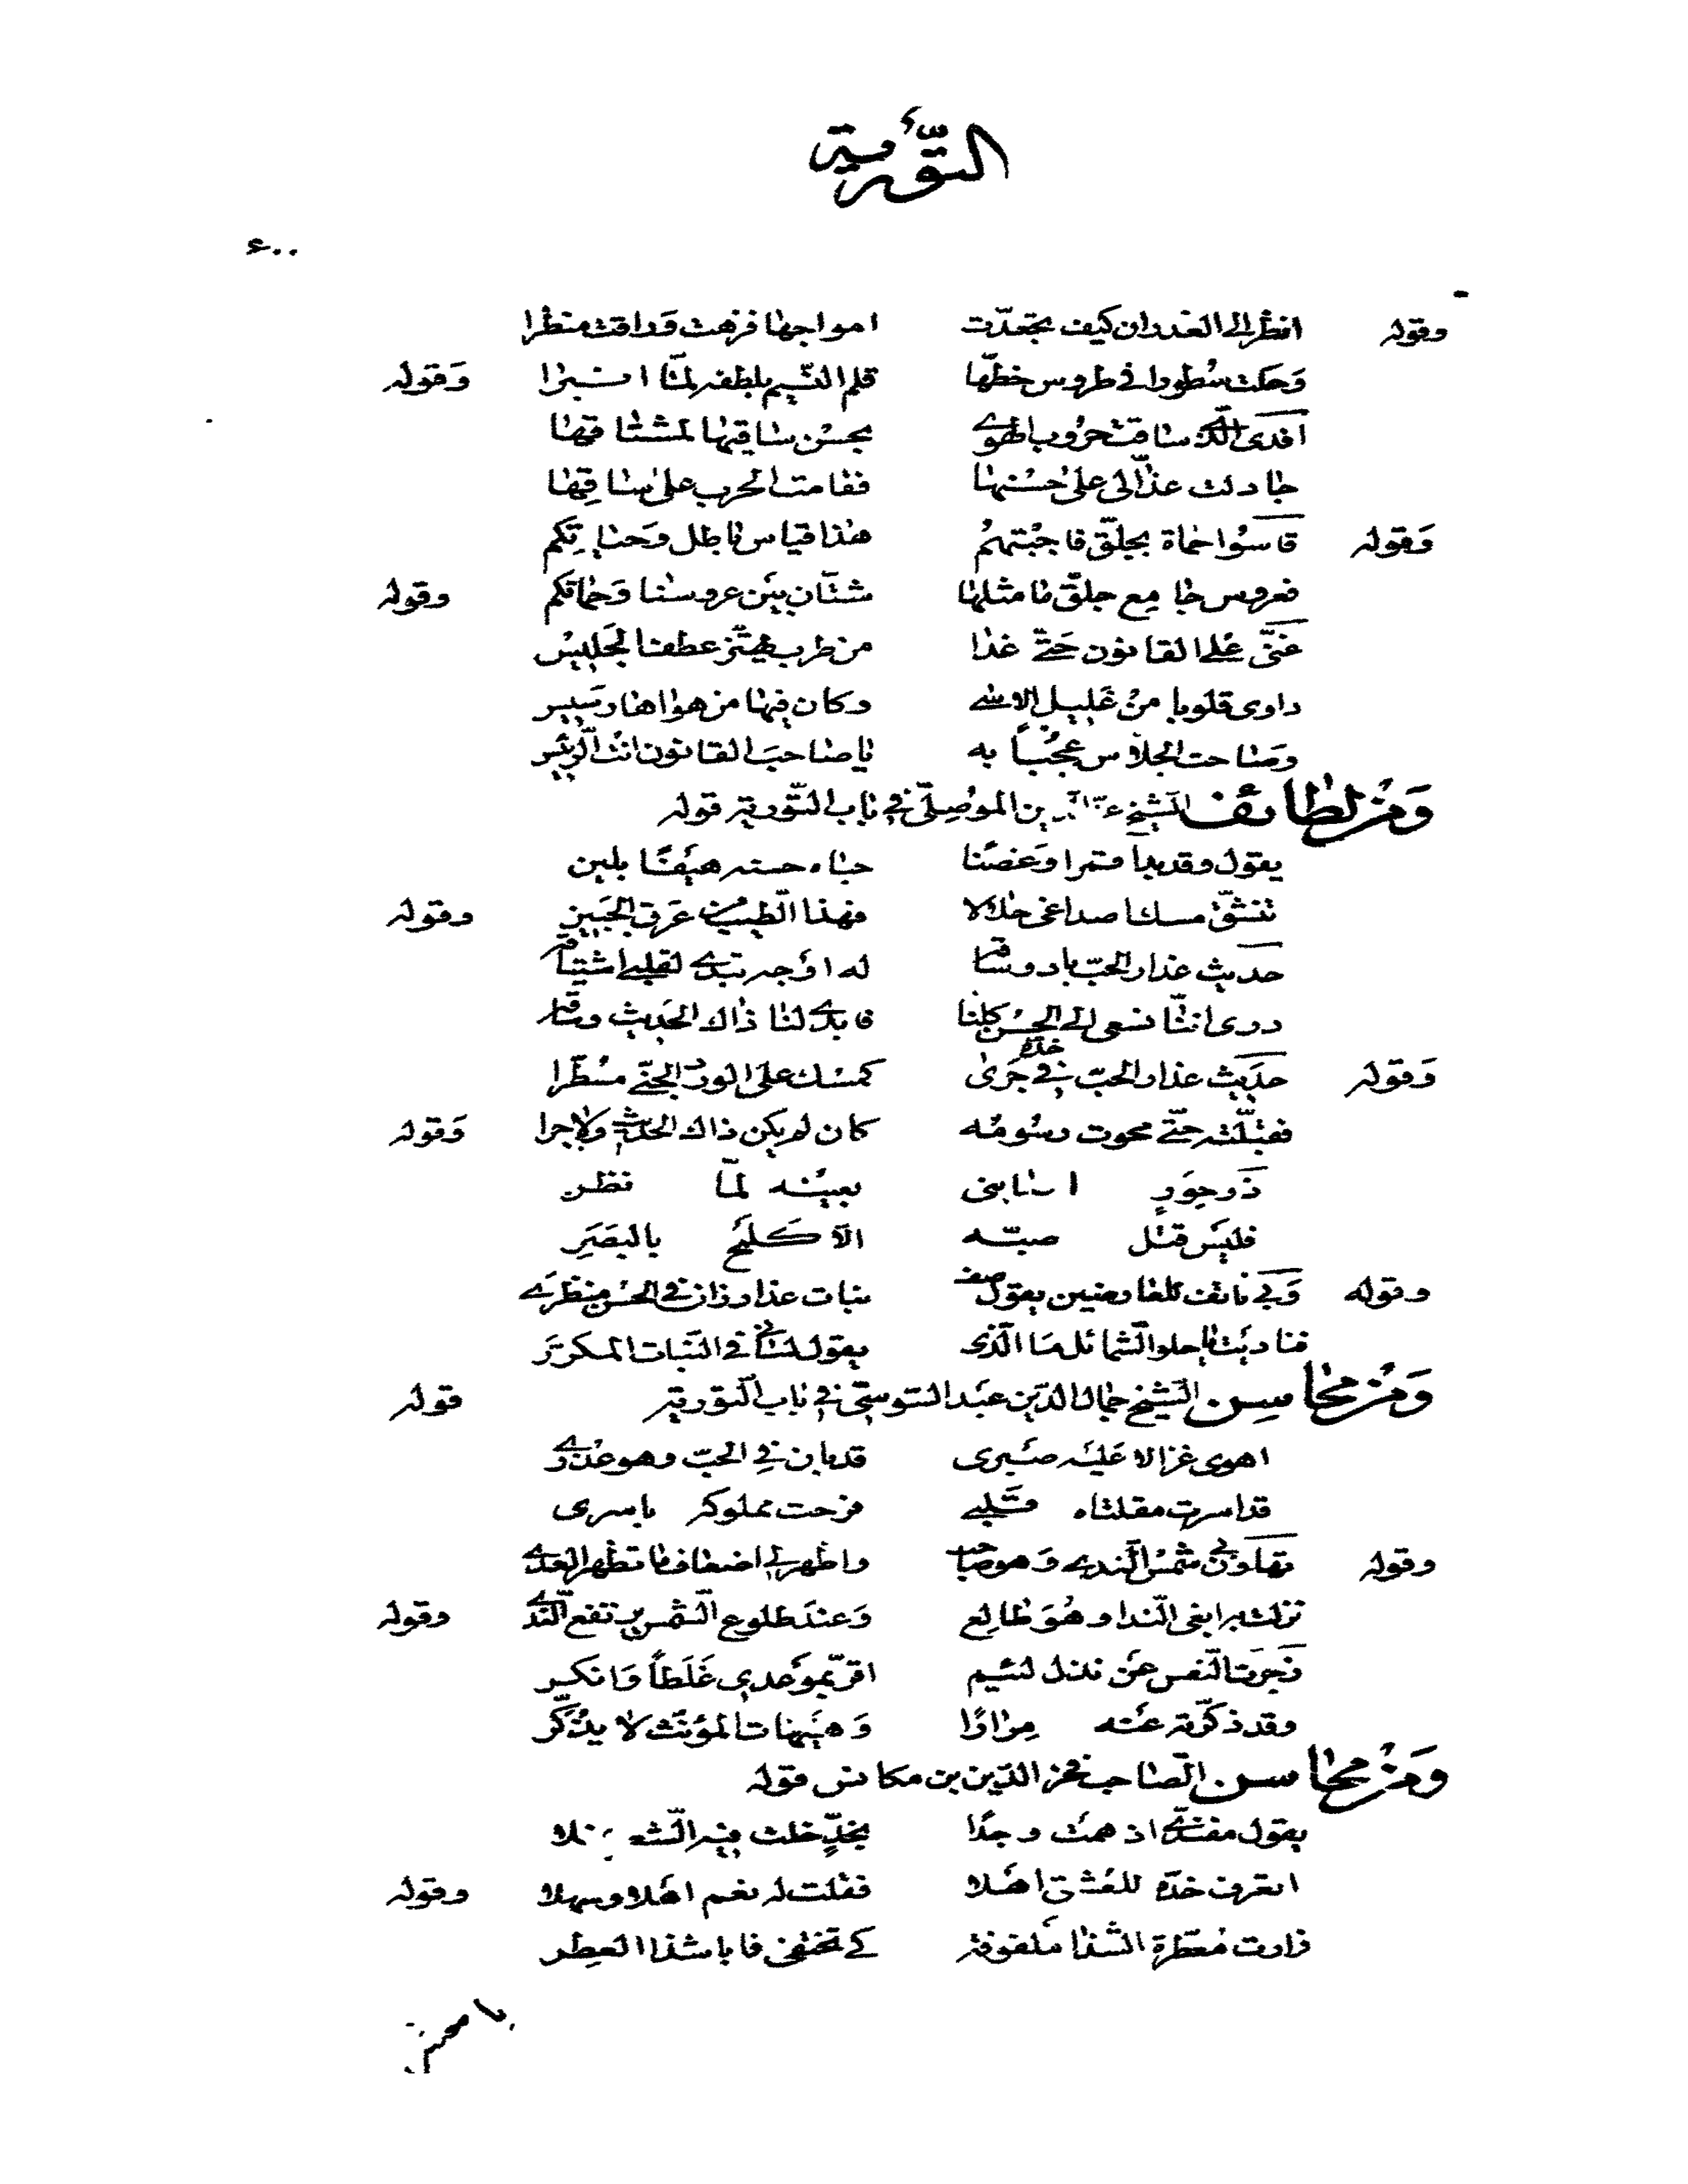 التورية
٤٠٠
وقوله انظر الى الغدران كيف تجعدت امواجها فزهت وراقت منظرا
وحكت سطورا في طروس خطها قلم النسيم بلطفه لما انبرا وقوله
افدى التى ساقت حروب الهوى بحسن ساقيها لمشتاقها
جادلت عذالى على حسنها فقامت الحرب على ساقها
وقوله قاسوا حماة بجلق فاجبتهم هذا قياس باطل وحياتكم
فعروس جامع جلق ما مثلها شتان بين عروسنا وحماتكم وقوله
غنى على القانون حتى غدا من طرب يهتز عطفا لجليس
داوى قلوبا من غليل الاسى وكان فيها من هواها رسيس
وصاحت الجلاس عجبا به يا صاحب القانون انت الرئيس
ومن لطائف الشيخ عز الدين الموصلى في باب التورية قوله
يقول وقد بدا قمرا وغصنا حباه حسنه هيفا بلين
تنشق مسك اصداغى حلالا فهذا الطيب من عرق الجبين وقوله
حديث عذار الحب باد وشاقه له اوجه تبدى لقلبى اشتياقه
درى اننا نسعى الى الحسن كلنا فابدى لنا ذاك الحديث وساقه
وقوله حديث عذار الحب في خده جرى كمسك على الورد الجنى مسطرا
فقبلته حتى محوت رسومه كان لم يكن ذاك الحديث ولا جرا وقوله
ذو حور اصابنى بعينه لما نظر
فليس قتل صبه الا كلمح بالبصر
وقوله وبى نائف كلفا رضين يقول صف نبات عذار زان في الحسن منظرى
فناديت يا حلو الشمائل ما الذى يقول لسانى في النبات المكرر
ومن محاسن الشيخ جمال الدين عبد السوسى في باب التورية قوله
اهوى غزالا عليه صبرى قد بان في الحب وهو عذرى
قد اسرت مقلتاه قلبى فرحت مملوكه باسرى
وقوله تهاون بى شمس الندى وهو صاحب واظهر لى اضعاف ما تظهر العدى
نزلت به ابغى الندا وهو طالع وعند طلوع الشمس يرتفع الندى وقوله
زجرت النفس عن نذل لئيم اقر بموعدي غلطا وانكر
وقد ذكرته عنه مرارا وهيهات المؤنث لا يذكر
ومن محاسن الصاحب فخر الدين بن مكانس قوله
يقول مفندى اذ همت وجدا بخد خلت فيه الشعر نملا
اتعرف خده للعشق اهلا فقلت له نعم اهلا وسهلا وقوله
زارت معطرة الشذا ملفوفة كي تختفى فابا شذا العطر